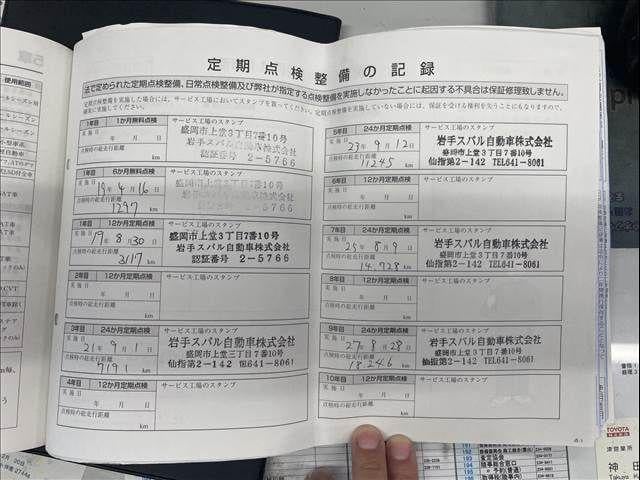 定期点検整備の記録
法で定められた定期点検整備、日常点検整備及び弊社が指定する点検整備を実施しなかったことに起因する不具合は保証修理致しません。
定期点検整備を実施した場合には、サービス工場においてスタンプを貰ってください。定期点検整備を実施していない場合には、保証を受ける権利を失うこともありますので、
確実に実施してください。
1年目 1か月無料点検 サービス工場のスタンプ
実施日 年 月 日
点検時の総走行距離 km
盛岡市上堂3丁目7番10号
岩手スバル自動車株式会社
認証番号 2-5766
1年目 6か月無料点検 サービス工場のスタンプ
実施日 19年 4月 16日
点検時の総走行距離 1297 km
盛岡市上堂3丁目7番10号
岩手スバル自動車株式会社
認証番号 2-5766
1年目 12か月定期点検 サービス工場のスタンプ
実施日 19年 8月 30日
点検時の総走行距離 3117 km
盛岡市上堂3丁目7番10号
岩手スバル自動車株式会社
認証番号 2-5766
2年目 12か月定期点検 サービス工場のスタンプ
実施日 年 月 日
点検時の総走行距離 km
3年目 24か月定期点検 サービス工場のスタンプ
実施日 21年 9月 1日
点検時の総走行距離 7191 km
岩手スバル自動車株式会社
盛岡市上堂三丁目7番10号
仙指第2-142 TEL641-8061
4年目 12か月定期点検 サービス工場のスタンプ
実施日 年 月 日
点検時の総走行距離 km
5年目 24か月定期点検 サービス工場のスタンプ
実施日 23年 9月 12日
点検時の総走行距離 11245 km
岩手スバル自動車株式会社
盛岡市上堂3丁目7番10号
仙指第2-142 TEL641-8061
6年目 12か月定期点検 サービス工場のスタンプ
実施日 年 月 日
点検時の総走行距離 km
7年目 24か月定期点検 サービス工場のスタンプ
実施日 25年 8月 9日
点検時の総走行距離 14,728 km
岩手スバル自動車株式会社
盛岡市上堂3丁目7番10号
仙指第2-142 TEL641-8061
8年目 12か月定期点検 サービス工場のスタンプ
実施日 年 月 日
点検時の総走行距離 km
9年目 24か月定期点検 サービス工場のスタンプ
実施日 27年 8月 28日
点検時の総走行距離 18246 km
岩手スバル自動車株式会社
盛岡市上堂3丁目7番10号
仙指第2-142 TEL641-8061
10年目 12か月定期点検 サービス工場のスタンプ
実施日 年 月 日
点検時の総走行距離 km
使用範囲
TOYOTA
神田